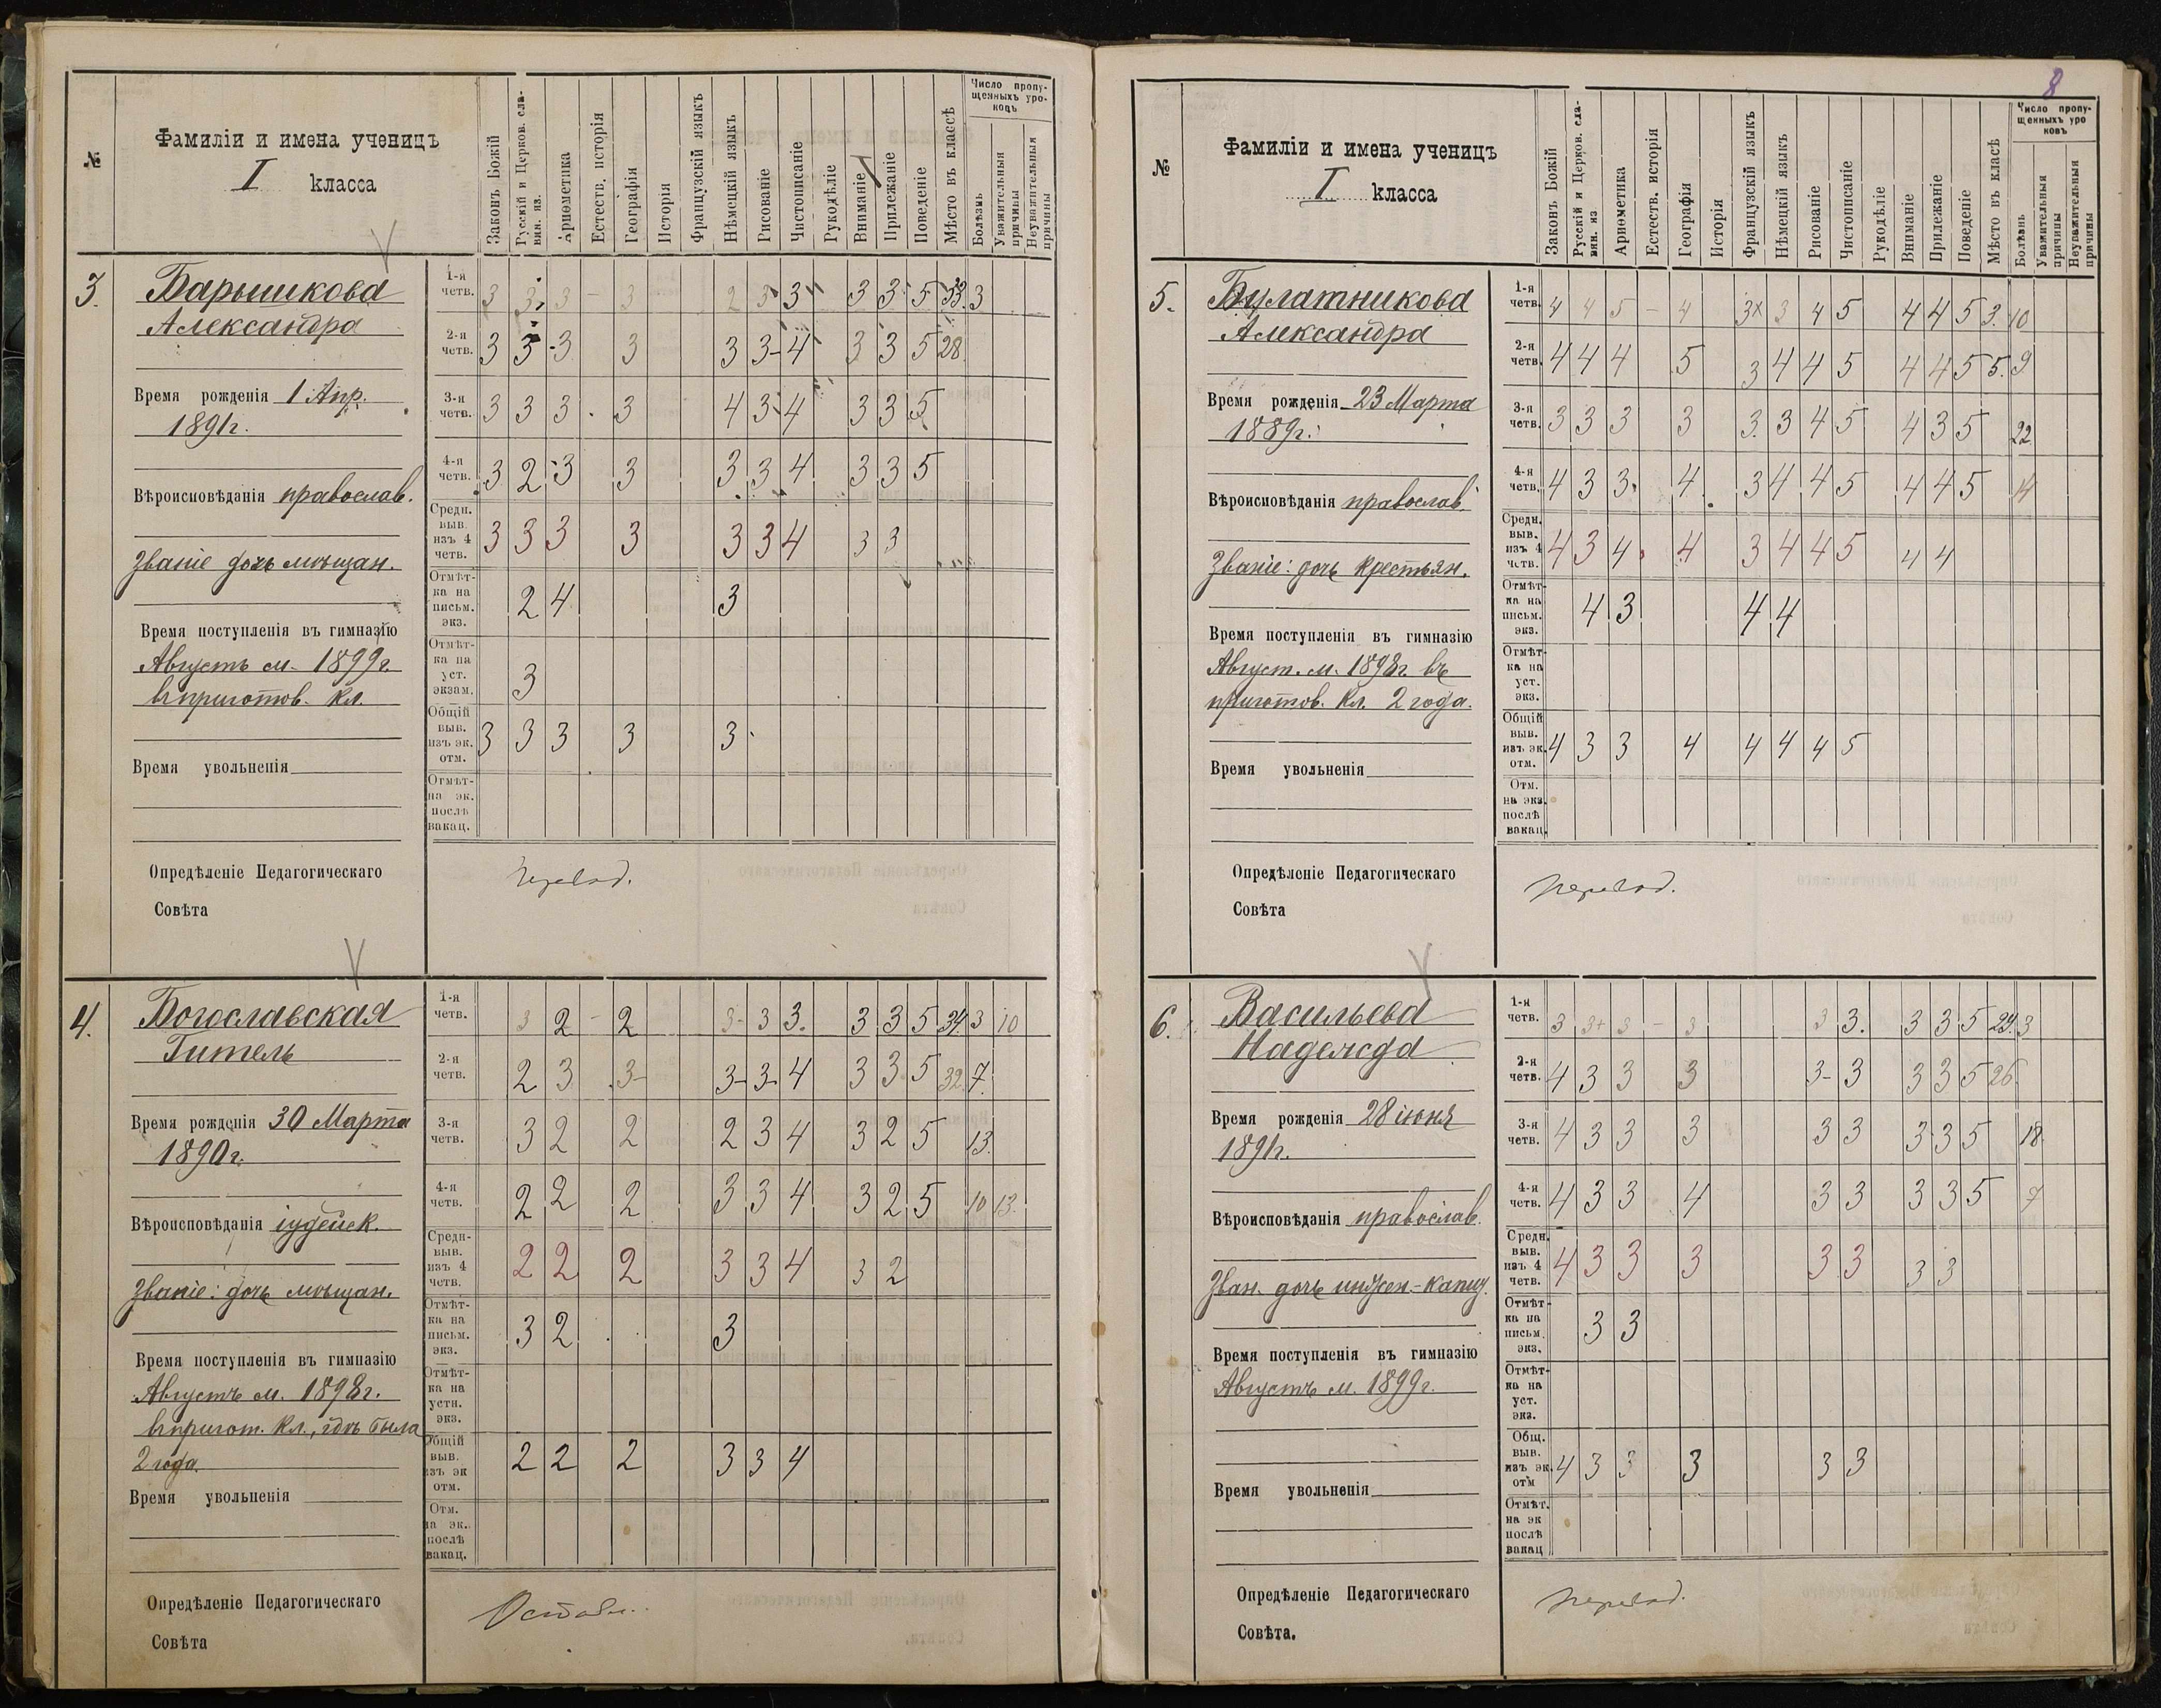 №
Фамиліи и имена ученицъ
I класса
Законъ Божій
Русскій и Церков. сла-
вян. яз.
Ариѳметика
Естеств. исторія
Географія
Исторія
Французскій языкъ
Нѣмецкій языкъ
Рисованіе
Чистописаніе
Рукодѣліе
Вниманіе
Прилежаніе
Поведеніе
Мѣсто въ классѣ
Число пропу-
щенныхъ уро-
ковъ
Болѣзнь
Уважительныя
причины
Неуважительныя
причины
3.
Барышкова
Александра
Время рожденія 1 Апр.
1891г.
Вѣроисповѣданія православ.
Званіе дочь мѣщан.
Время поступленія въ гимназію
Августъ м. 1899г.
въ приготов. кл.
Время увольненія
1-я четв. 3 3 3 - 3 2 3 3 3 3 5 33. 3
2-я четв. 3 3 3 3 3 3- 4 3 3 5 28.
3-я четв. 3 3 3 3 4 3 4 3 3 5
4-я четв. 3 2 3 3 3 3 4 3 3 5
Средн. выв. изъ 4 четв. 3 3 3 3 3 3 4 3 3
Отмѣт-ка на письм. экз. 2 4 3
Отмѣт-ка на уст. экзам. 3
Общій выв. изъ эк. отм. 3 3 3 3 3
Отмѣт-на эк. послѣ вакац.
Опредѣленіе Педагогическаго
Совѣта
Перевод.
4.
Богославская
Гитель
Время рожденія 30 Марта
1890г.
Вѣроисповѣданія іудейск.
Званіе: дочь мѣщан.
Время поступленія въ гимназію
Августъ м. 1898г.
въ пригот. кл., гдѣ была
2 года.
Время увольненія
1-я четв. 3 2 - 2 3- 3 3. 3 3 5 34. 3 10
2-я четв. 2 3 3- 3- 3- 4 3 3 5 32. 7.
3-я четв. 3 2 2 2 3 4 3 2 5 13.
4-я четв. 2 2 2 3 3 4 3 2 5 10 13.
Средн- выв. изъ 4 четв. 2 2 2 3 3 4 3 2
Отмѣт-ка на письм. экз. 3 2 3
Отмѣт-ка на устн. экз.
Общій выв. изъ эк отм. 2 2 2 3 3 4
Отм. на эк. послѣ вакац.
Опредѣленіе Педагогическаго
Совѣта
Оставл.
8
№
Фамиліи и имена ученицъ
I класса
Законъ Божій
Русскій и Церков. сла-
вян. яз
Ариѳметика
Естеств. исторія
Географія
Исторія
Французскій языкъ
Нѣмецкій языкъ
Рисованіе
Чистописаніе
Рукодѣліе
Вниманіе
Прилежаніе
Поведеніе
Мѣсто въ класѣ
Число пропу-
щенныхъ уро
ковъ
Болѣзнь
Уважительныя
причины
Неуважительныя
причины
5.
Булатникова
Александра
Время рожденія 23 Марта
1889г.
Вѣроисповѣданія православ.
Званіе: дочь крестьян.
Время поступленія въ гимназію
Август. м. 1898г. въ
приготов. кл. 2 года.
Время увольненія
1-я четв. 4 4 5 - 4 3× 3 4 5 4 4 5 3. 10
2-я четв. 4 4 4 5 3 4 4 5 4 4 5 5. 9
3-я четв. 3 3 3 3 3. 3 4 5 4 3 5 22
4-я четв. 4 3 3 4. 3 4 4 5 4 4 5 14
Средн. выв. изъ 4 четв. 4 3 4 4 3 4 4 5 4 4
Отмѣт-ка на письм. экз. 4 3 4 4
Отмѣт-ка на уст. экз.
Общій выв. изъ эк. отм. 4 3 3 4 4 4 4 5
Отм. на экз. послѣ вакац.
Опредѣленіе Педагогическаго
Совѣта
Перевод.
6.
Васильева
Надежда
Время рожденія 28 іюня
1891г.
Вѣроисповѣданія православ.
Зван. дочь инжен.-капит.
Время поступленія въ гимназію
Августъ м. 1899г.
Время увольненія
1-я четв. 3 3+ 3 - 3 3 3. 3 3 5 24. 3
2-я четв. 4 3 3 3 3- 3 3 3 5 26.
3-я четв. 4 3 3 3 3 3 3 3 5 18.
4-я четв. 4 3 3 4 3 3 3 3 5 7
Средн. выв. изъ 4 четв. 4 3 3 3 3 3 3 3
Отмѣт-ка на письм. экз. 3 3
Отмѣт-ка на уст. экз.
Общ. выв. изъ эк. отм 4 3 3 3 3 3
Отмѣт. на эк послѣ вакац
Опредѣленіе Педагогическаго
Совѣта.
Перевод.